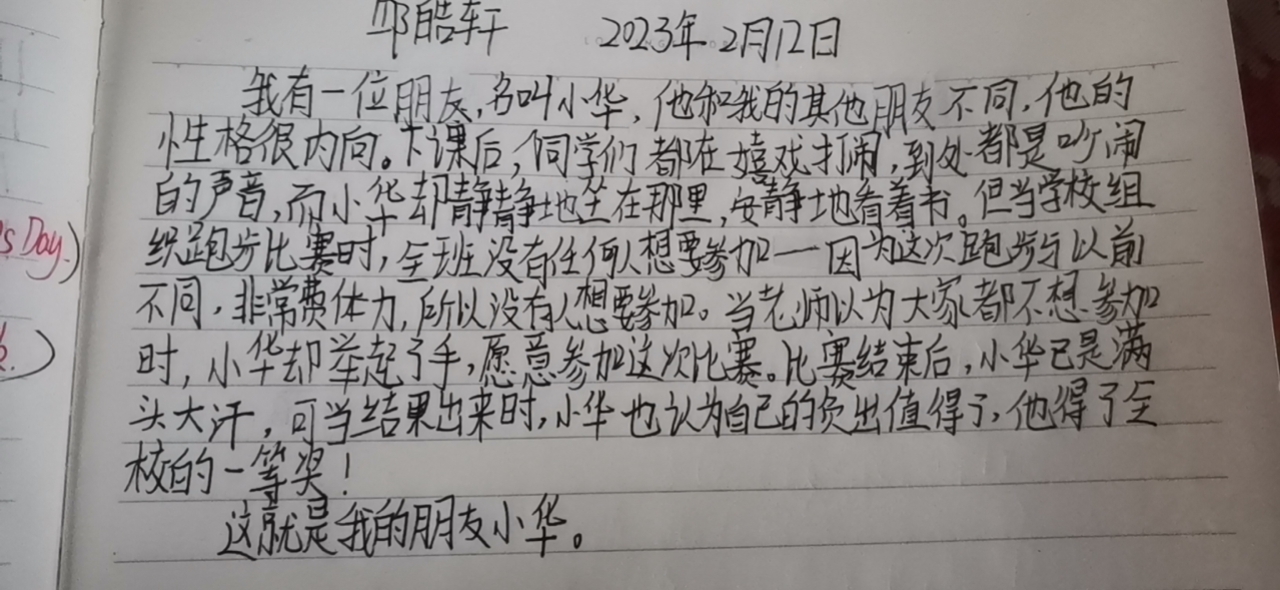 邱皓轩 2023年2月12日
我有一位朋友,名叫小华,他和我的其他朋友不同,他的
性格很内向。下课后,同学们都在嬉戏打闹,到处都是吵闹
的声音,而小华却静静地坐在那里,安静地看着书。但当学校组
s Day.)
织跑步比赛时,全班没有任何人想要参加一因为这次跑步与以前
不同,非常费体力,所以没有人想要参加。当老师以为大家都不想参加
时,小华却举起了手,愿意参加这次比赛。比赛结束后,小华已是满
头大汗,可当结果出来时,小华也认为自己的负出值得了,他得了全
校的一等奖!
这就是我的朋友小华。